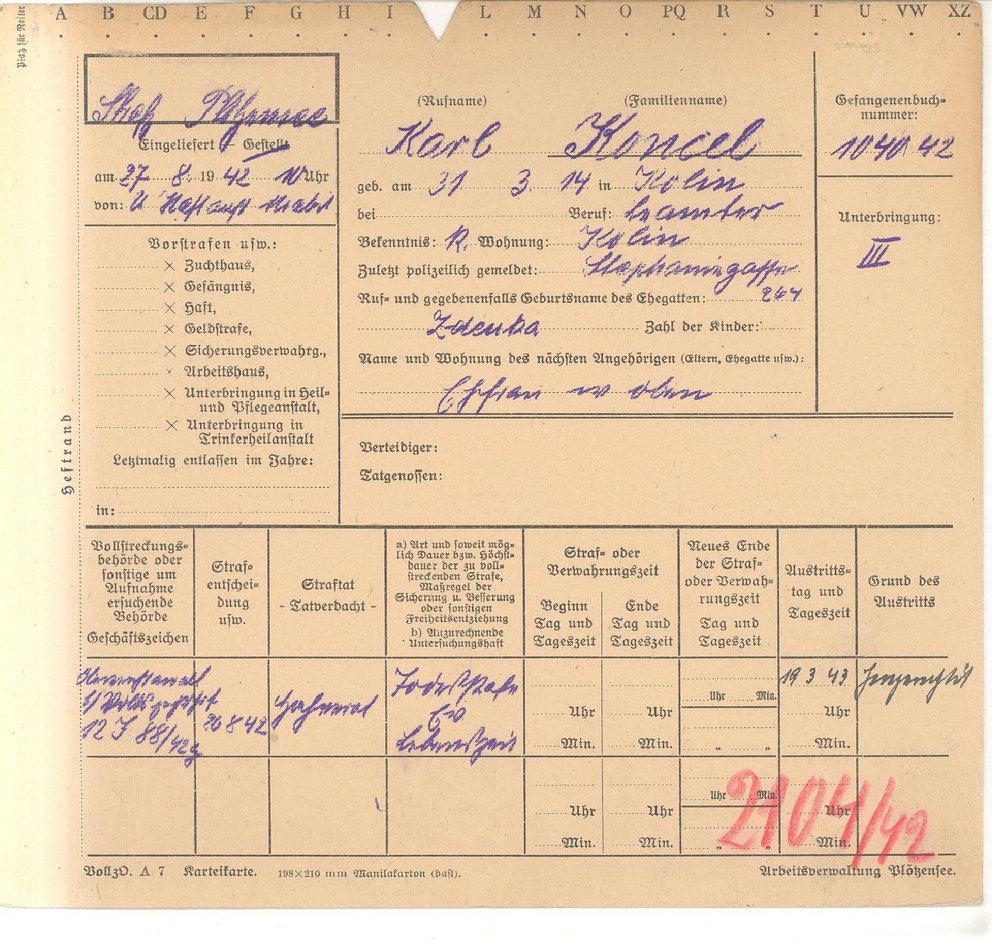 A B CD E F G H I L M N O PQ R S T U VW XZ
Straf Plötzensee
Eingeliefert – Gestellt
am 27 8. 1942 10 Uhr
von: U Haftanst Moabit
Vorstrafen usw.:
× Zuchthaus,
× Gefängnis,
× Haft,
× Geldstrafe,
× Sicherungsverwahrg.,
× Arbeitshaus,
× Unterbringung in Heil-
und Pflegeanstalt,
× Unterbringung in
Trinkerheilanstalt
Letztmalig entlassen im Jahre:
in:
Heftrand
(Rufname) (Familienname)
Karl Koncel
geb. am 31 3. 14 in Kolin
bei Beruf: beamter
Bekenntnis: R. Wohnung: Kolin
Zuletzt polizeilich gemeldet: Stephaniegasse
Ruf- und gegebenenfalls Geburtsname des Ehegatten: 264
Zdenka Zahl der Kinder:
Name und Wohnung des nächsten Angehörigen (Eltern, Ehegatte usw.):
Ehefrau w oben
Gefangenenbuch-
nummer:
1040 42
Unterbringung:
III
Verteidiger:
Tatgenossen:
Vollstreckungs-
behörde oder
sonstige um
Aufnahme
ersuchende
Behörde
Geschäftszeichen
Straf-
entschei-
dung
usw.
Straftat
- Tatverdacht -
a) Art und soweit mög-
lich Dauer bzw. Höchst-
dauer der zu voll-
streckenden Strafe,
Maßregel der
Sicherung u. Besserung
oder sonstigen
Freiheitsentziehung
b) Anzurechnende
Untersuchungshaft
Straf- oder
Verwahrungszeit
Beginn
Tag und
Tageszeit
Ende
Tag und
Tageszeit
Neues Ende
der Straf-
oder Verwah-
rungszeit
Tag und
Tageszeit
Austritts-
tag und
Tageszeit
Grund des
Austritts
Oberreichsanwalt
b/ Volksgericht
12 J 88/42g
26 8 42
Hochverrat
Todesstrafe
Ev
Lebenszeit
Uhr Min.
Uhr
Min.
Uhr
Min.
" "
19 3 43
Uhr
Min.
hingerichtet
Uhr
Min.
Uhr
Min.
Uhr Min.
" "
Uhr
Min.
2104/42
VollzO. A 7 Karteikarte. 198×210 mm Manilakarton (bast).
Arbeitsverwaltung Plötzensee.